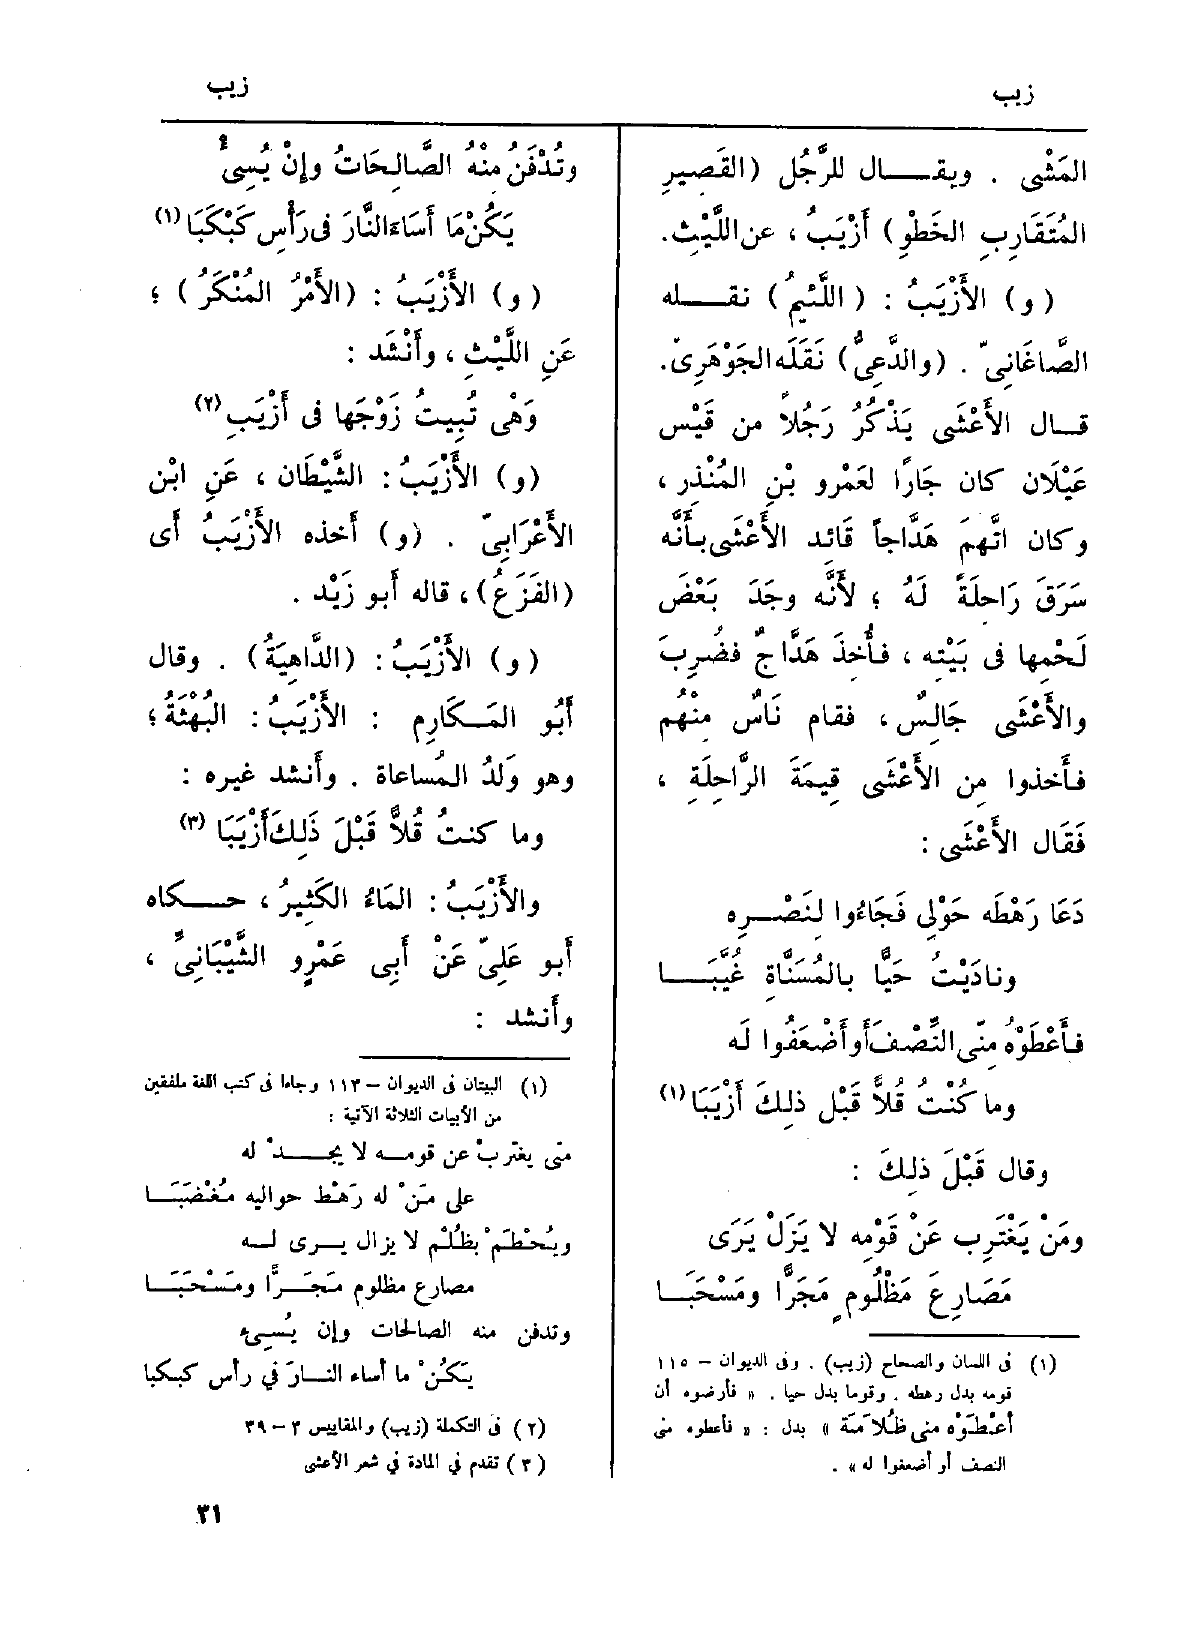 زيب
زيب
المَشْى . ويقــال للرَّجُل (القَصِيرِ
المُتَقَارِبِ الخَطْوِ) أَزْيَبُ ، عن اللَّيْث.
(و) الأَزْيَبُ : (اللَّئِيمُ) نقــله
الصَّاغَانِىّ . (والدَّعِىُّ) نَقَلَه الجَوْهَرِىّ.
قــال الأَعْشَى يَذْكُرُ رَجُلاً من قَيْس
عَيْلَان كان جَارًا لعَمْرو بْنِ المُنْذِر ،
وكان اتَّهمَ هَدَّاجاً قَائد الأَعْشَى بأَنَّه
سَرَقَ رَاحِلَةً لَهُ ؛ لأَنَّه وجَدَ بَعْضَ
لَحْمِها فى بَيْتِه ، فأُخِذَ هَدَّاجٌ فضُرِبَ
والأَعْشَى جَالِسٌ ، فقام نَاسٌ مِنْهُم
فأَخذوا مِن الأَعْشَى قِيمَةَ الرَّاحِلَةِ ،
فَقَال الأَعْشَى :
دَعَا رَهْطَه حَوْلِى فَجَاءُوا لنَصْــرِه
ونادَيْتُ حَيًّا بالمُسَنَّاةِ غُيَّبَــا
فأَعْطَوْهُ مِنِّى النِّصْفَ أَو أَضْعَفُوا لَه
وما كُنْتُ قُلاًّ قَبْل ذلِكَ أَزْيَبَا (١)
وقال قَبْلَ ذلِكَ :
ومَنْ يَغْتَرِب عَنْ قَوْمِه لا يَزَلْ يَرَى
مَصَارِعَ مَظْلُومٍ مَجَرًّا ومَسْحَبَــا
(١) فى اللسان والصحاح (زيب) . وفى الديوان – ١١٥
قومه بدل رهطه . وقوما بدل حيا . « فأرضوه أن
أعْطَوْه منى ظُلاَمَة » بدل : « فأعطوه منى
النصف أو أضعفوا له » .
وتُدْفَنُ منهُ الصَّالِحَاتُ وإِنْ يُسِىءُ
يَكُنْ مَا أَسَاءَ النَّارَ فى رَأْس كَبْكَبَا (١)
(و) الأَزْيَبُ : (الأَمْرُ المُنْكَرُ) ؛
عَنِ اللَّيْثِ ، وأَنْشَد :
وَهْى تُبِيتُ زَوْجَها فى أَزْيَبِ (٢)
(و) الأَزْيَبُ : الشَّيْطَان ، عَنِ ابْن
الأَعْرَابِىّ . (و) أَخذه الأَزْيَبُ أَى
(الفَزَعُ) ، قاله أَبو زَيْد .
(و) الأَزْيَبُ : (الدَّاهِيَةُ) . وقال
أَبُو المَـكَارِم : الأَزْيَبُ : البُهْثَةُ ؛
وهو وَلَدُ المُساعاة . وأَنشد غيره :
وما كنتُ قُلاًّ قَبْلَ ذَلِكَ أَزْيَبَا (٣)
والأَزْيَبُ : المَاءُ الكَثِيرُ ، حــكاه
أَبو عَلِىّ عَنْ أَبِى عَمْرٍو الشَّيْبَانِىِّ ،
وأَنشد :
(١) البيتان فى الديوان – ١١٣ وجاءا فى كتب اللغة ملفقين
من الأبيات الثلاثة الآتية :
متى يغتربْ عن قومــه لا يجــدْ له
على مَنْ له رَهْط حواليه مُغْضَبَــا
ويُحْطَمْ بظُلْم لا يزال يــرى لــه
مصارع مظلوم مَجَــرًّا ومَسْحَبَــا
وتدفن منه الصالحات وإن يُســىء
يَكُنْ ما أساء النــارَ في رأس كبكبا
(٢) فى التكملة (زيب) والمقاييس ٣ – ٣٩
(٣) تقدم في المادة في شعر الأعشى
٣١